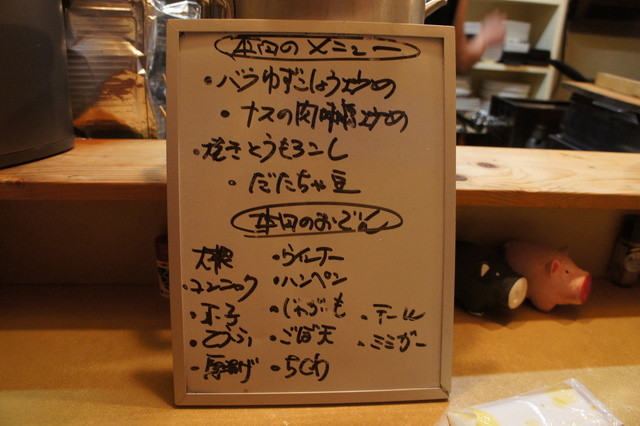 本日のメニュー
・バラゆずこしょう炒め
・ナスの肉味噌炒め
・焼きとうもろこし
・だだちゃ豆
本日のおでん
大根
・コンニャク
・玉子
・とうふ
・厚揚げ
・ウインナー
・ハンペン
・じゃがいも
・ごぼ天
・ちくわ
・テール
・ミミガー